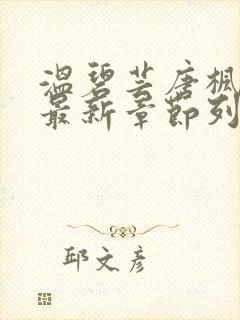 温碧芸唐枫
最新章节列
邱文彦